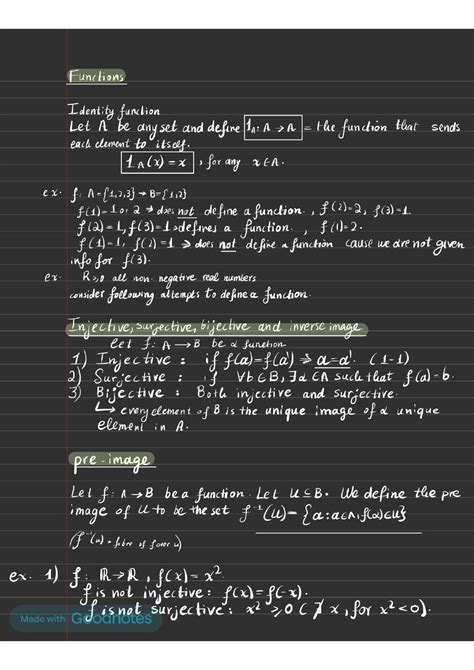 Functions
Identity function
Let A be any set and define 1_A: A → A = the function that sends
each element to itself.
1_A(x) = x , for any x∈A.
ex. f: A={1,2,3} → B={1,2}
f(1)=1 or 2 → does not define a function. , f(2)=2, f(3)=1.
f(2)=1, f(3)=1 → defines a function. , f(1)=2.
f(1)=1, f(2)=1 → does not define a function cause we are not given
info for f(3).
ex. R≥0 all non-negative real numbers
consider following attempts to define a function.
Injective, surjective, bijective and inverse image
let f: A → B be a function
1) Injective : if f(a)=f(a') ⇒ a=a'. (1-1)
2) Surjective : if ∀b∈B, ∃a∈A such that f(a)=b.
3) Bijective : Both injective and surjective.
↳ every element of B is the unique image of a unique
element in A.
pre-image
Let f: A→B be a function. Let U⊆B. We define the pre
image of U to be the set f⁻¹(U)= {a: a∈A, f(a)∈U}
(f⁻¹(u) = fibre of f over u)
ex. 1) f: R→R , f(x)=x².
f is not injective: f(x)=f(-x).
f is not surjective: x² ≥0 (∄ x, for x²<0).
Made with Goodnotes